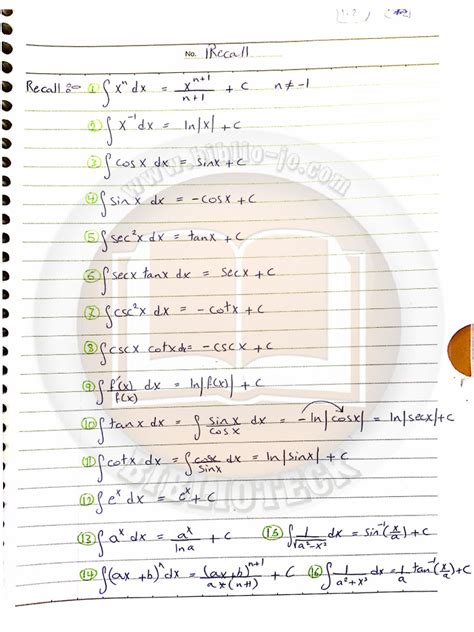 No. 1Recall
Recall :- ① ∫ xⁿ dx = xⁿ⁺¹/n+1 + C n ≠ -1
② ∫ x⁻¹ dx = ln|x| + C
③ ∫ cosx dx = sinx + C
④ ∫ sinx dx = -cosx + C
⑤ ∫ sec²x dx = tanx + C
⑥ ∫ secx tanx dx = secx + C
⑦ ∫ csc²x dx = -cotx + C
⑧ ∫ cscx cotx dx = -cscx + C
⑨ ∫ f'(x)/f(x) dx = ln|f(x)| + C
⑩ ∫ tanx dx = ∫ sinx/cosx dx = -ln|cosx| = ln|secx| + C
⑪ ∫ cotx dx = ∫ cosx/sinx dx = ln|sinx| + C
⑫ ∫ eˣ dx = eˣ + C
⑬ ∫ aˣ dx = aˣ/lna + C ⑮ ∫ 1/√a²-x² dx = sin⁻¹(x/a) + C
⑭ ∫ (ax+b)ⁿ dx = (ax+b)ⁿ⁺¹/a×(n+1) + C ⑯ ∫ 1/a²+x² dx = 1/a tan⁻¹(x/a) + C
www.biblio-jo.com
BIBLIOTECK